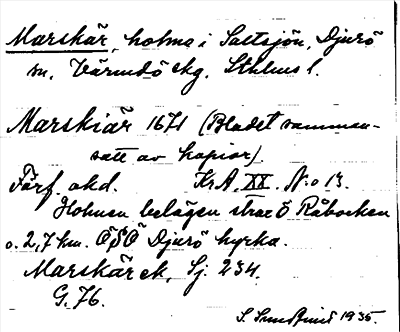 Marskär, holme i Saltsjön, Djurö
sn, Värmdö skg. Sthlms l.
Marskiär 1671 (Bladet samman-
satt av kopior)
Förf. okd. KrA. XX. No 13.
Holmen belägen strax Ö Råbocken
o. 2,7 km. ÖSÖ Djurö kyrka.
Marskär ek, Sj. 234.
G. 76.
1935